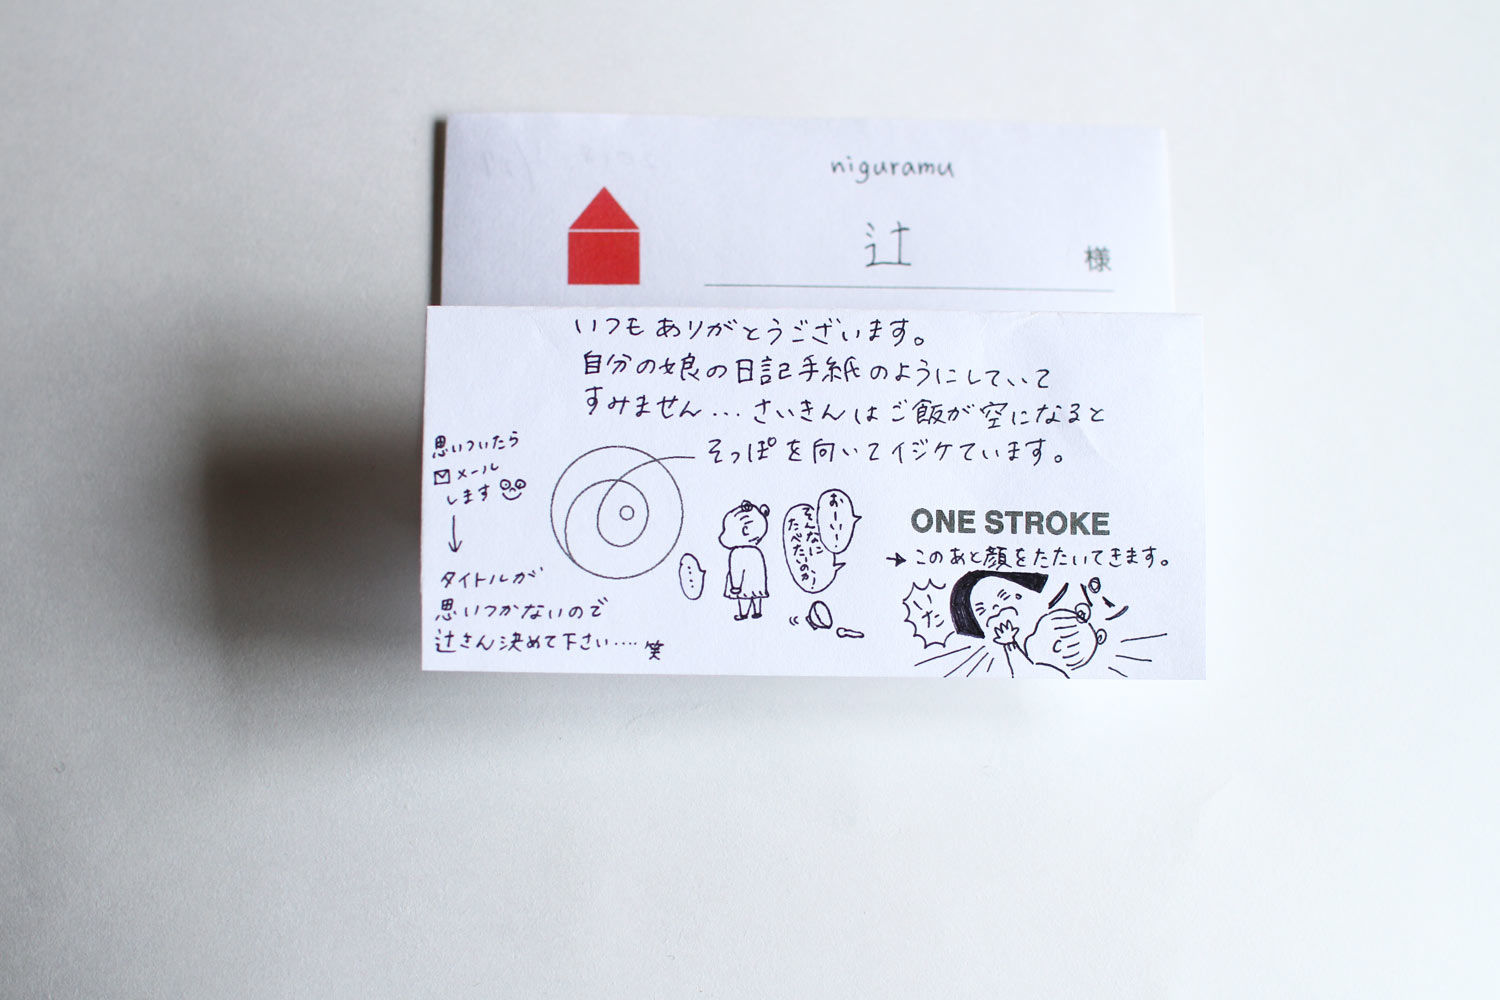 niguramu
辻 様
いつもありがとうございます。
自分の娘の日記手紙のようにしていて
すみません…さいきんはご飯が空になると
そっぽを向いてイジケています。
思いついたら
メール
します
タイトルが
思いつかないので
辻さん決めて下さい‥‥笑
……
おーい!
そんなに
たべたいのか!
ONE STROKE
→このあと顔をたたいてきます。
いた